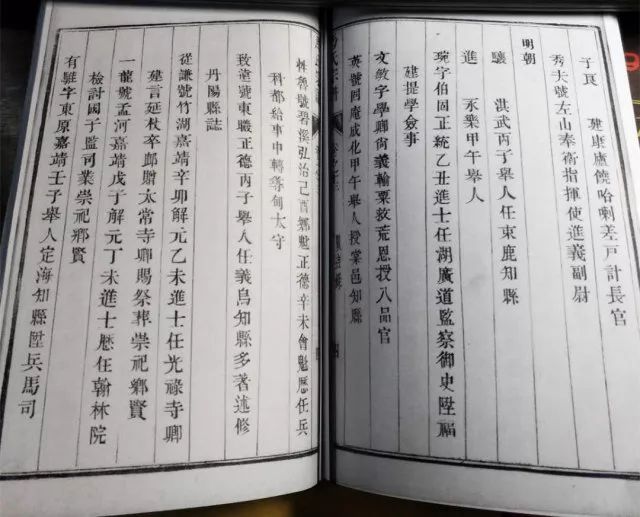 子良 建康廬饒哈喇差戶計長官
秀夫號左山奉衛指揮使進義副尉
明朝
驥 洪武丙子舉人任東鹿知縣
進 永樂甲午舉人
琬字伯固正統乙丑進士任湖廣道監察御史陞福
建提學僉事
文敷字學卿尚義輸粟救荒恩授八品官
英號同庵成化甲午舉人授棠邑知縣
魯號碧溪弘治己酉鄉魁正德辛未會魁歷任兵
科都給事中轉尋甸太守
致堂號東職正德丙子舉人任義烏知縣多著述修
丹陽縣誌
從謙號竹湖嘉靖辛卯解元乙未進士任光祿寺卿
建言延杖卒郎贈太常寺卿賜祭葬崇祀鄉賢
一龍號孟河嘉靖戊子解元丁未進士歷任翰林院
檢討國子監司業崇祀鄉賢
有騅字東原嘉靖壬子舉人定海知縣陞兵馬司